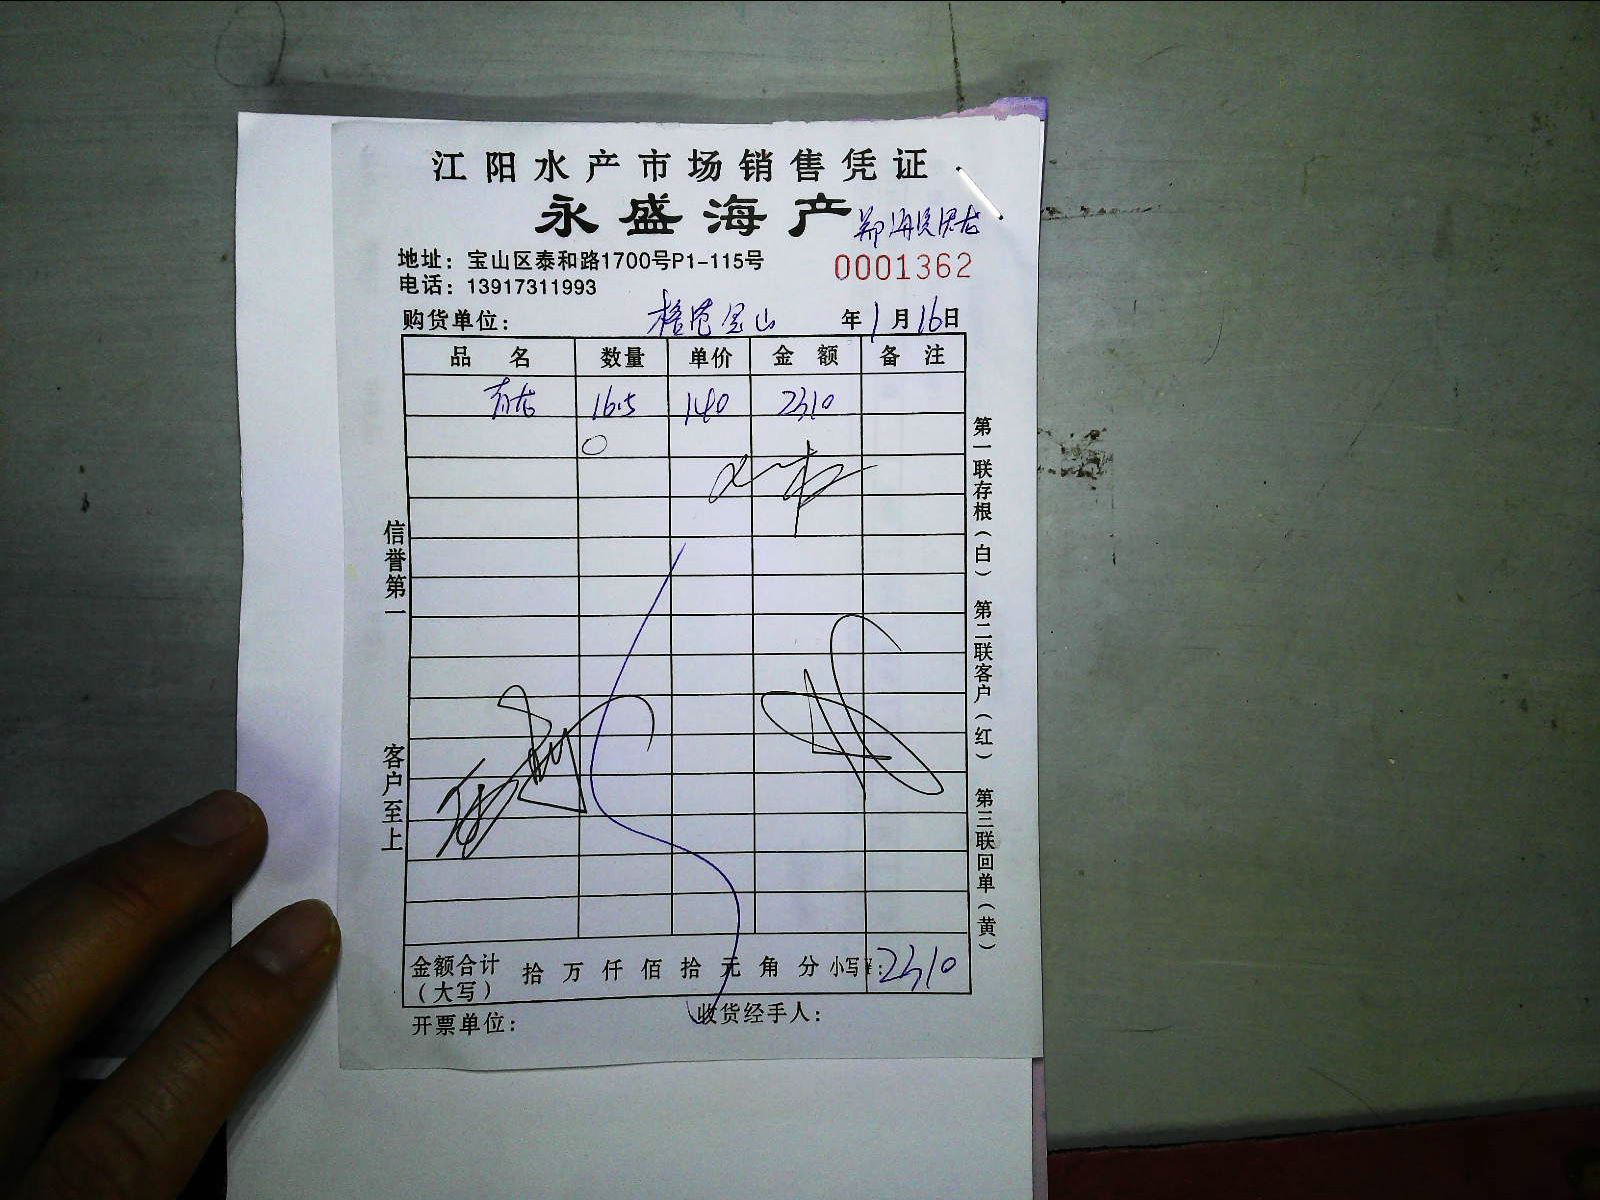 江阳水产市场销售凭证
永盛海产
地址：宝山区泰和路1700号P1-115号
0001362
电话：13917311993
购货单位： 宝山 年1月16日
品名 数量 单价 金额 备注
青龙 16.5 140 2310
信誉第一
客户至上
第一联存根（白） 第二联客户（红） 第三联回单（黄）
金额合计（大写） 拾万仟佰拾元角分 小写¥:2310
开票单位： 收货经手人：